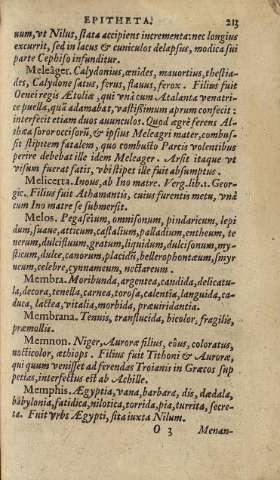 EPITHETA. 213
num, vt Nilus, stata accipiens incrementa: nec longius
excurrit, sed in lacus & cuniculos delapsus, modica sui
parte Cephiso infunditur.
Meleager. Calydonius, œnides, mauortius, thestia-
des, Calydone satus, ferus, sæuus, ferox. Filius fuit
Oenei regis Ætoliæ, qui vnà cum Atalanta venatri-
ce puella, quā adamabat, vastissimum aprum confecit:
interfecit etiam duos auunculos. Quod ægrè ferens Al-
thæa soror occisorū, & ipsius Meleagri mater, combus-
sit stipitem fatalem, quo combusto Parcis volentibus
perire debebat ille idem Meleager. Arsit itaque vt
visum fuerat fatis, vbi stipes ille fuit absumptus.
Melicerta. Inous, ab Ino matre. Verg. lib. 1. Geor-
gic. Filius fuit Athamantis, cuius furentis metu, vnà
cum Ino matre se submersit.
Melos. Pegaseium, omnisonum, pindaricum, lepi
dum, suaue, atticum, castalium, palladium, entheum, te
nerum, dulcisluum, gratum, liquidum, dulcisonum, my-
sticum, dulce, canorum, placidū, bellerophontæum, smyr
næum, celebre, cynnameum, nectareum.
Membra. Moribunda, argentea, candida, delicatu-
la, decora, tenella, carnea, torosa, calentia, languida, ca-
duca, lactea, vitalia, morbida, præuiridantia.
Membrana. Tenuis, translucida, bicolor, fragilis,
præmollis.
Memnon. Niger, Auroræ filius, eous, coloratus,
nocticolor, æthiops. Filius fuit Tithoni & Auroræ,
qui quum venisset ad ferendas Troianis in Græcos sup
petias, interfectus est ab Achille.
Memphis. Ægyptia, vana, barbara, dis, dædala,
babylonia, fatidica, nilotica, torrida, pia, turrita, secre-
ta. Fuit vrbs Ægypti, sita iuxta Nilum.
O 3 Menan-